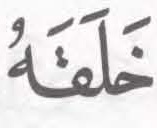 خَلَقَهُ